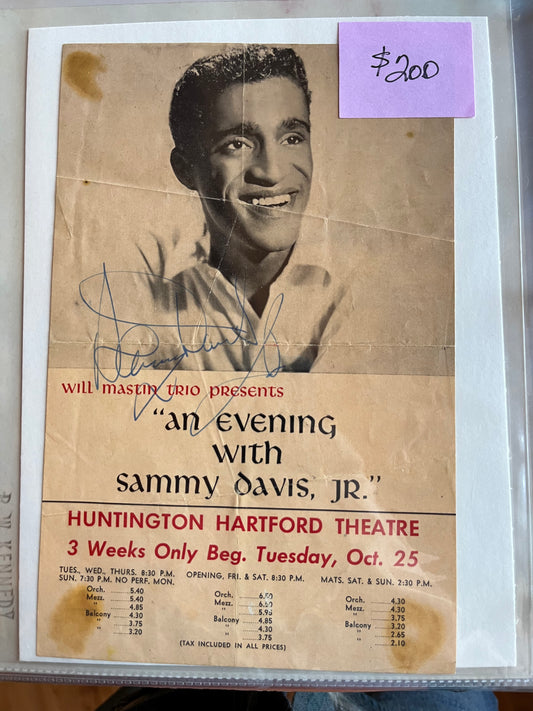 $200
Sammy Davis Jr
WILL MASTIN TRIO PRESENTS
"AN EVENING
WITH
SAMMY DAVIS, JR."
HUNTINGTON HARTFORD THEATRE
3 Weeks Only Beg. Tuesday, Oct. 25
TUES., WED., THURS. 8:30 P.M.
SUN. 7:30 P.M. NO PERF. MON.
Orch. ......5.40
Mezz. ......5.40
" ......4.85
Balcony ......4.30
" ......3.75
" ......3.20
OPENING, FRI. & SAT. 8:30 P.M.
Orch. ......6.60
Mezz. ......6.60
" ......5.95
Balcony ......4.85
" ......4.30
" ......3.75
MATS. SAT. & SUN. 2:30 P.M.
Orch. ......4.30
Mezz. ......4.30
" ......3.75
Balcony ......3.20
" ......2.65
" ......2.10
(TAX INCLUDED IN ALL PRICES)
KENNEDY